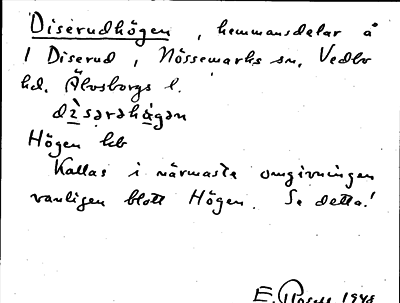 Diserudhögen, hemmansdelar å
1 Diserud, Nössemarks sn, Vedbo
hd. Älvsborgs l.
dìsərəhágən
Högen
Kallas i närmaste omgivningen
vanligen blott Högen. Se detta!
E. 1948